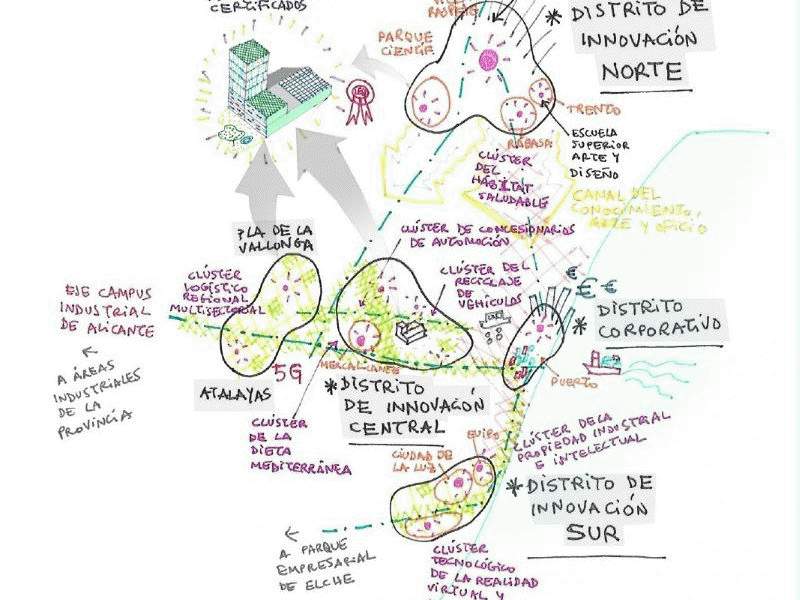 CERTIFICADOS
PARQUE
* DISTRITO DE
INNOVACIÓN
NORTE
TRENTO
RABASA
ESCUELA
SUPERIOR
ARTE Y
DISEÑO
CLÚSTER
DEL
HÁBITAT
SALUDABLE
CANAL DEL
CONOCIMIENTO,
ARTE Y OFICIO
PLA DE LA
VALLONGA
CLÚSTER DE CONCESIONARIOS
DE AUTOMOCIÓN
CLÚSTER
LOGÍSTICO
REGIONAL
MULTISECTORIAL
CLÚSTER DEL
RECICLAJE
DE
VEHÍCULOS
EJE CAMPUS
INDUSTRIAL
DE ALICANTE
A ÁREAS
INDUSTRIALES
DE LA
PROVINCIA
€ € €
* DISTRITO
CORPORATIVO
PUERTO
MERCALICANTE
5G
ATALAYAS
* DISTRITO
DE INNOVACIÓN
CENTRAL
CLÚSTER
DE LA
DIETA
MEDITERRÁNEA
CLÚSTER DE LA
PROPIEDAD INDUSTRIAL
E INTELECTUAL
EUIPO
CIUDAD DE
LA LUZ
* DISTRITO DE
INNOVACIÓN
SUR
A PARQUE
EMPRESARIAL
DE ELCHE
CLÚSTER
TECNOLÓGICO
DE LA REALIDAD
VIRTUAL Y